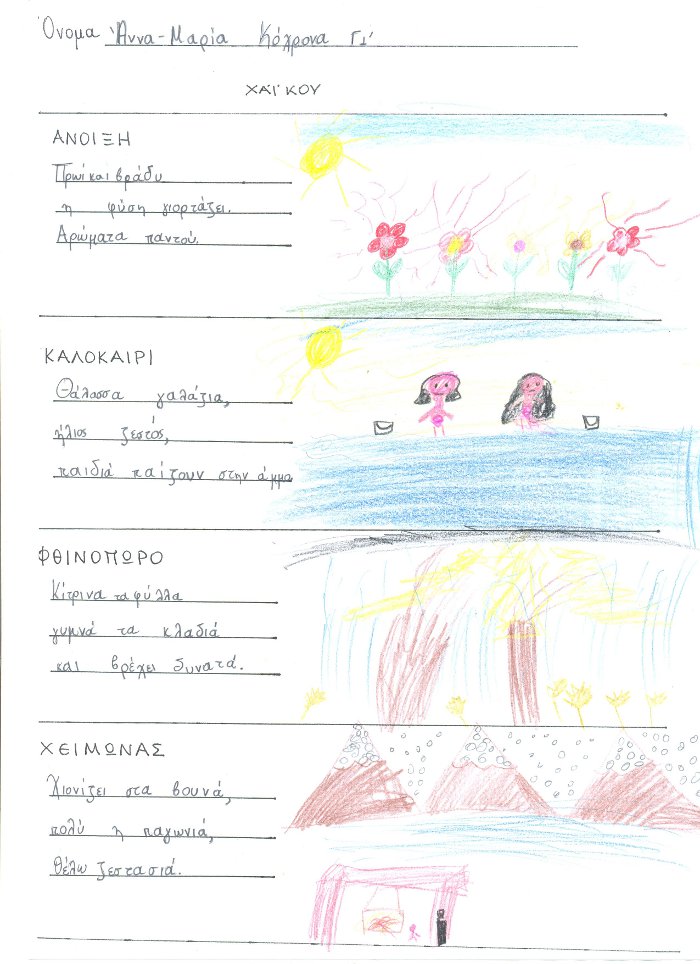 Όνομα Άννα-Μαρία Κόχρονα Γ1'
ΧΑΪΚΟΥ
ΑΝΟΙΞΗ
Πρωί και βράδυ
η φύση γιορτάζει.
Αρώματα παντού.
ΚΑΛΟΚΑΙΡΙ
Θάλασσα γαλάζια,
ήλιος ζεστός,
παιδιά παίζουν στην άμμο
ΦΘΙΝΟΠΩΡΟ
Κίτρινα τα φύλλα
γυμνά τα κλαδιά
και βρέχει δυνατά.
ΧΕΙΜΩΝΑΣ
Χιονίζει στα βουνά,
πολύ η παγωνιά,
θέλω ζεστασιά.